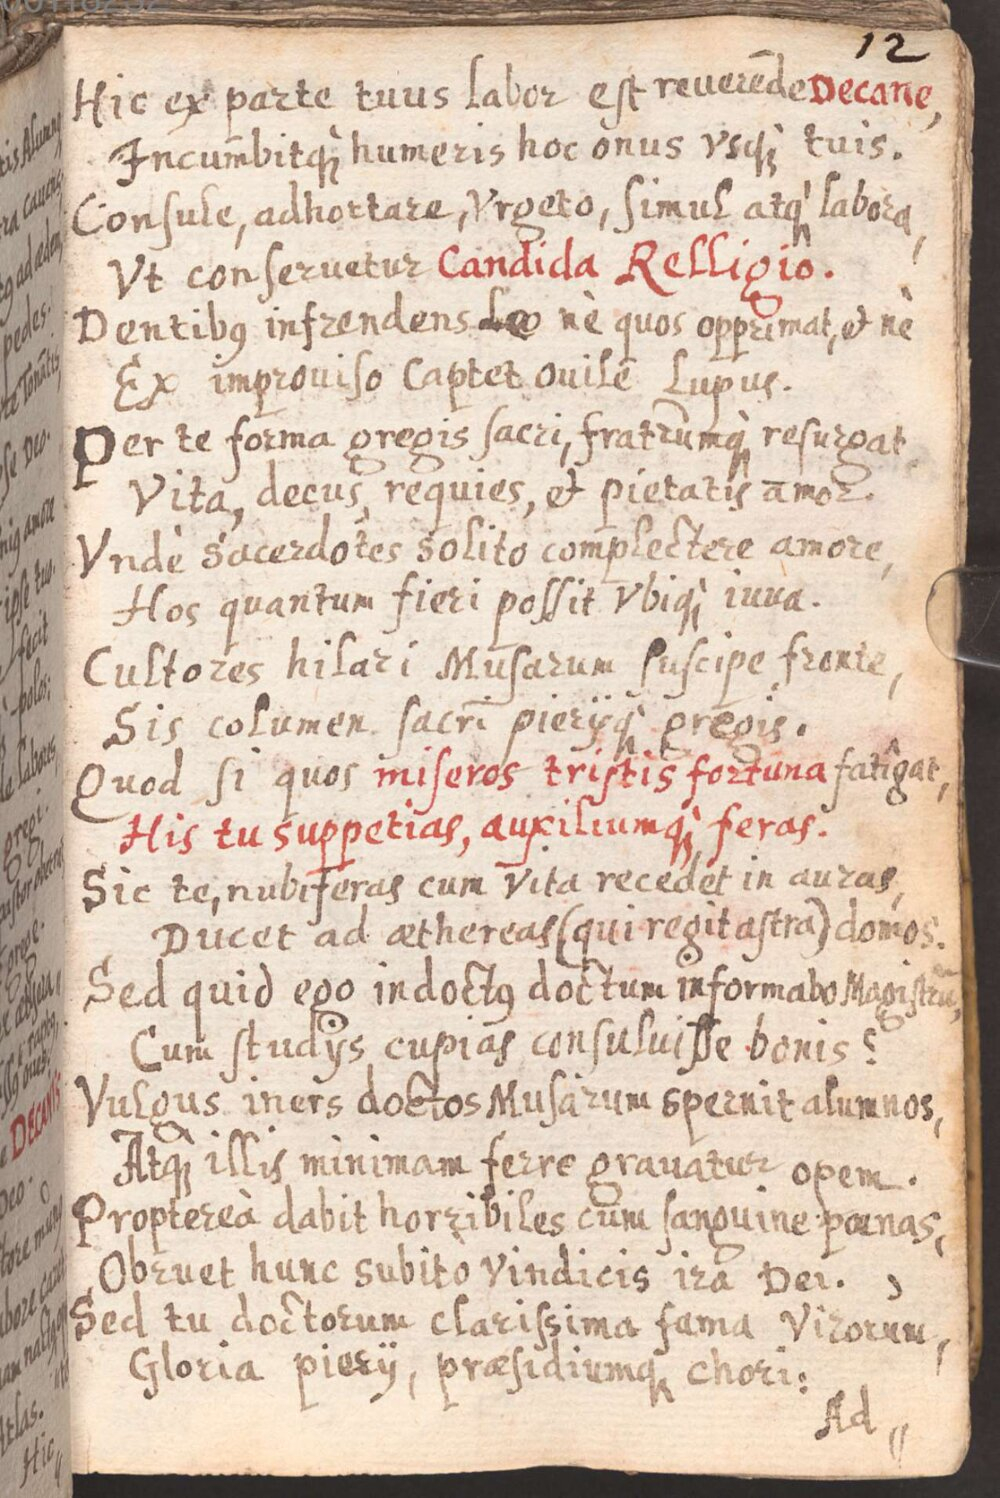 12
Hic ex parte tuus labor est reuerēde Decane,
Incum̄bitq; humeris hoc onus vsq; tuis.
Consule, adhortare, vrgeto, simul atq; labora,
Vt conseruetur Candida Relligio.
Dentibꝰ infrendens Leo nè quos opprimat, et nè
Ex improuiso captet ouile Lupus.
Per te forma gregis sacri, fratrumq; resurgat
Vita, decus, requies, et pietatis amor.
Vndè sacerdotes solito complectere amore,
Hos quantum fieri possit vbiq; iuua.
Cultores hilari Musarum suscipe fronte,
Sis columen sacri pierijq; gregis.
Quod si quos miseros tristis fortuna fatigat,
His tu suppetias, auxiliumq; feras.
Sic te, nubiferas cum vita recedet in auras,
Ducet ad æthereas (qui regit astra) domos.
Sed quid ego indoctꝰ doctum informabo Magistrū,
Cum studijs cupias consuluisse bonis?
Vulgus iners doctos Musarum spernit alumnos,
Atq; illis minimam ferre grauatur opem.
Proptereà dabit horribiles cum sanguine pœnas,
Obruet hunc subito vindicis ira Dei.
Sed tu doctorum clarissima fama virorum,
Gloria pierij, præsidiumq; chori:
Ad